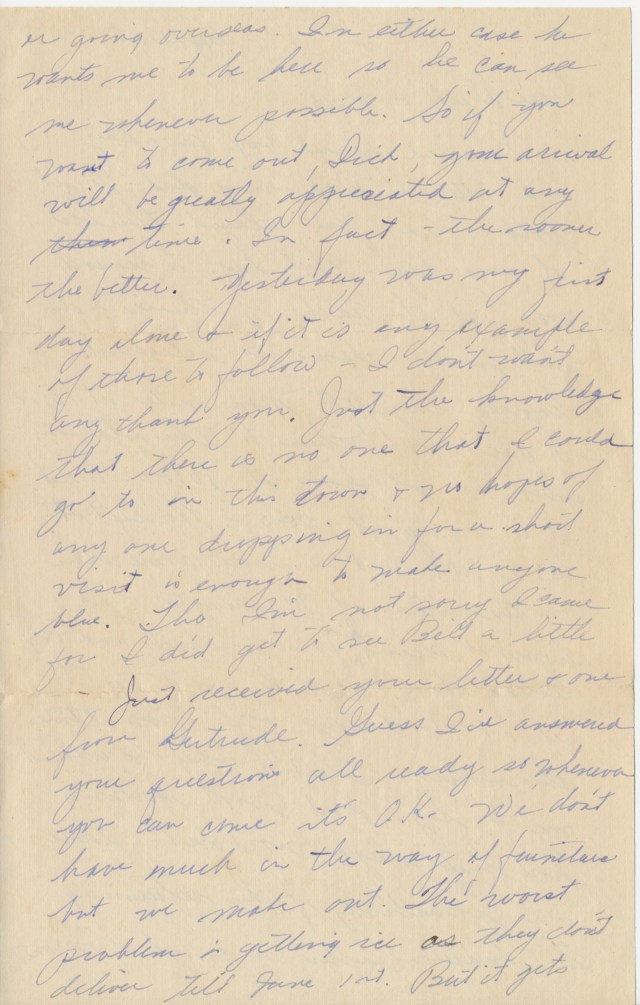 or going overseas. In either case he
wants me to be here so he can see
me whenever possible. So if you
want to come out, Dick, your arival
will be greatly appreciated at any
time. In fact - the sooner
the better. Yesterday was my first
day alone & if it is any example
of those to follow - I don't want
any thank you. Just the knowledge
that there is no one that I could
go to in this town & no hopes of
any one dropping in for a short
visit is enough to make anyone
blue. Tho I'm not sorry I came
for I did get to see Bill a little
- Just received your letter & one
from Gertrude. Guess I've answered
your questions all ready so whenever
you can come it's O.K. We don't
have much in the way of furniture
but we make out. The worst
problem is getting ice as they don't
deliver till June 1st. But it gets